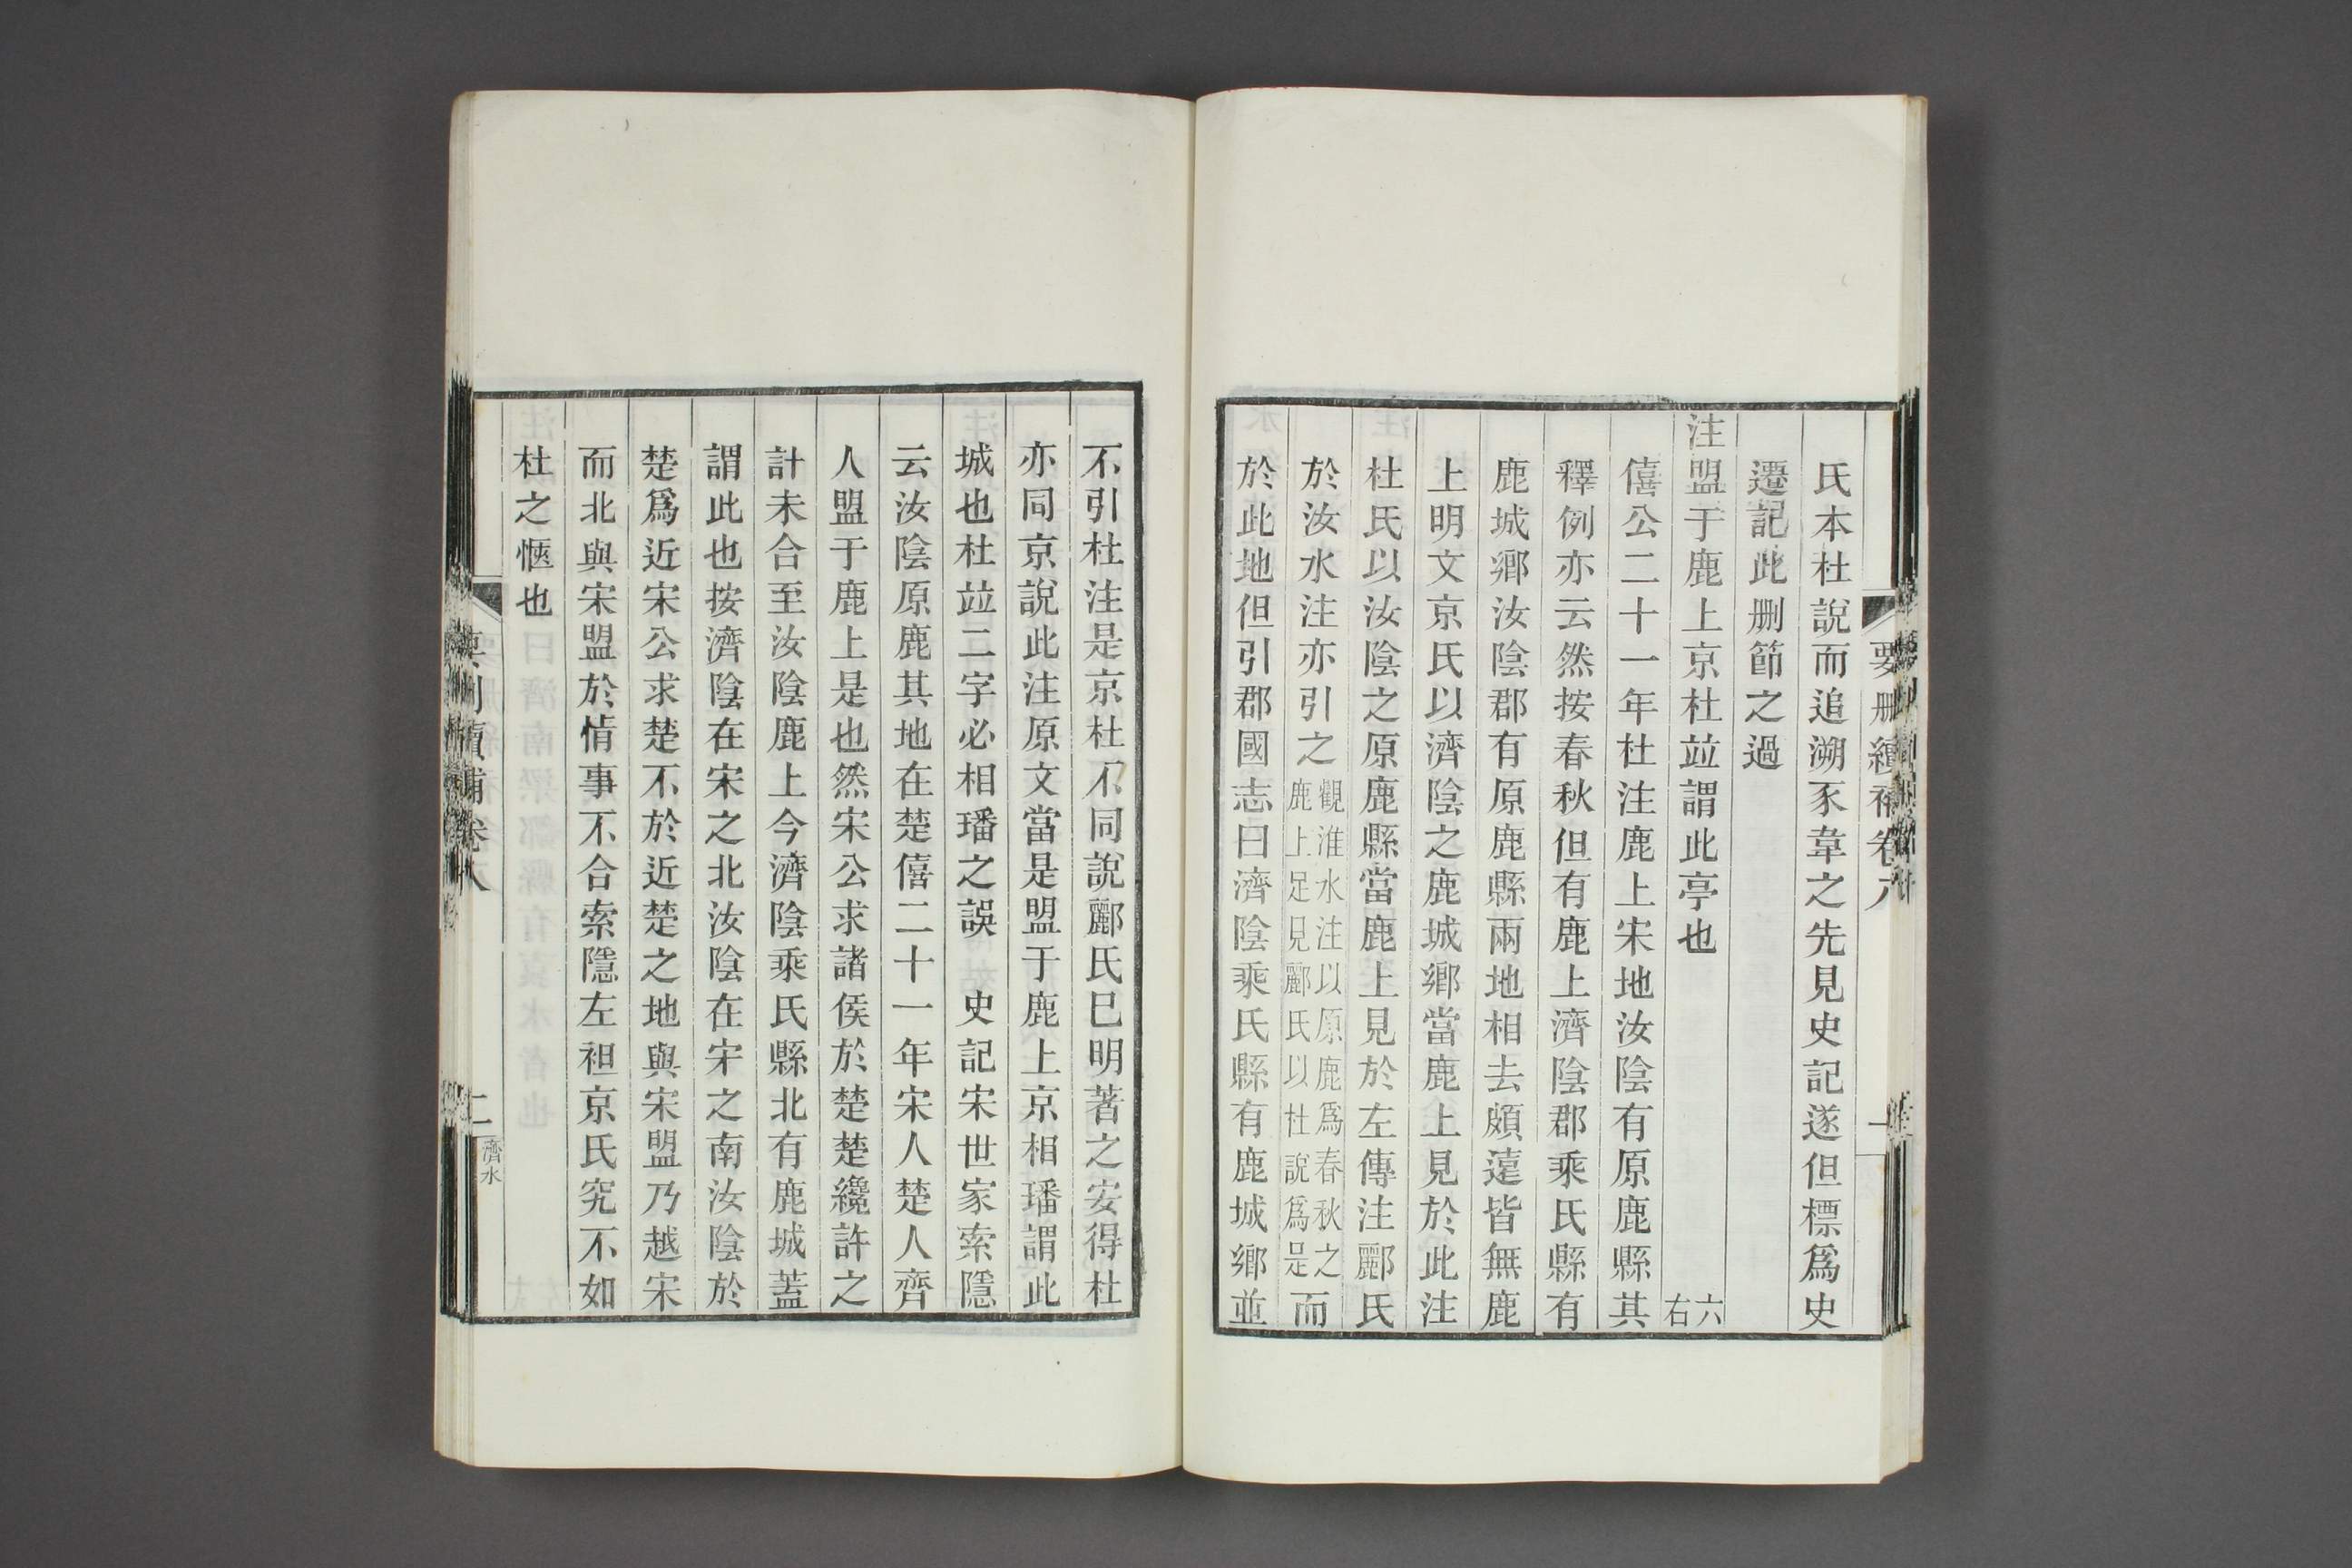 氏本杜說而追溯豕韋之先見史記遂但標爲史
遷記此删節之過
注盟于鹿上京杜竝謂此亭也 六右
僖公二十一年杜注鹿上宋地汝陰有原鹿縣其
釋例亦云然按春秋但有鹿上濟陰郡乘氏縣有
鹿城鄉汝陰郡有原鹿縣兩地相去頗遠皆無鹿
上明文京氏以濟陰之鹿城鄉當鹿上見於此注
杜氏以汝陰之原鹿縣當鹿上見於左傳注酈氏
於汝水注亦引之觀淮水注以原鹿爲春秋之鹿上足見酈氏以杜說爲是而
於此地但引郡國志曰濟陰乘氏縣有鹿城鄉並
要删續補卷六
一
不引杜注是京杜不同說酈氏已明著之安得杜
亦同京說此注原文當是盟于鹿上京相璠謂此
城也杜竝二字必相璠之誤 史記宋世家索隱
云汝陰原鹿其地在楚僖二十一年宋人楚人齊
人盟于鹿上是也然宋公求諸侯於楚楚纔許之
計未合至汝陰鹿上今濟陰乘氏縣北有鹿城蓋
謂此也按濟陰在宋之北汝陰在宋之南汝陰於
楚爲近宋公求楚不於近楚之地與宋盟乃越宋
而北與宋盟於情事不合索隱左袒京氏究不如
杜之愜也
濟水